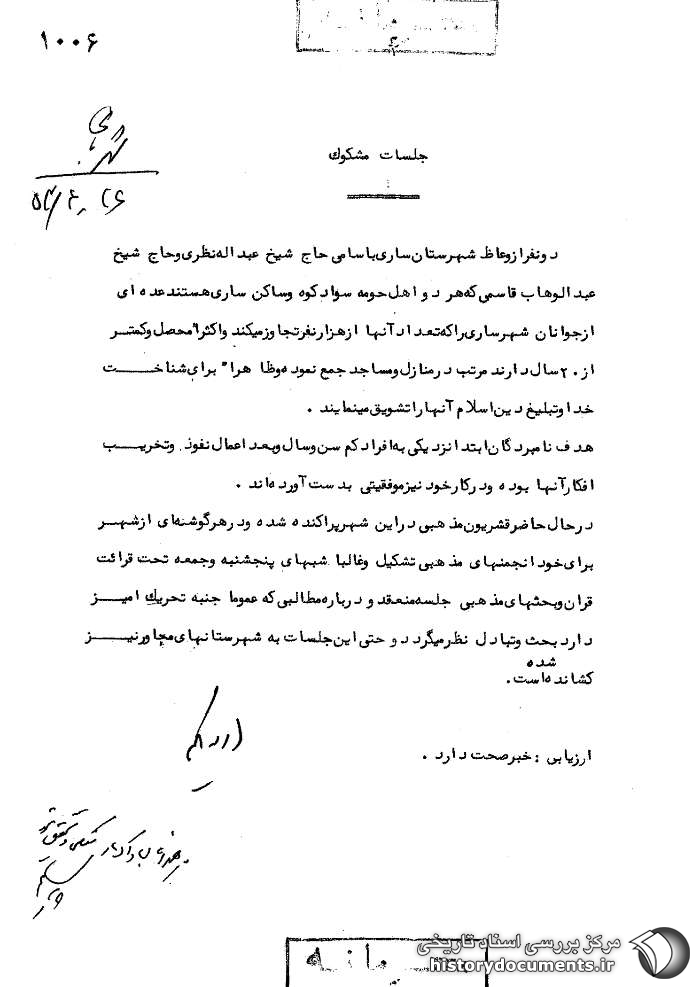 ۱۰۰۶
جلسات مشکوك
۵۴/۴/۲۶
دونفر ازوعاظ شهرستان ساری باسامی حاج شیخ عبداله نظری وحاج شیخ
عبدالوهاب قاسمی که هر دو اهل حومه سوادکوه وساکن ساری هستند عده ای
ازجوانان شهرساری راکه تعداد آنها ازهزارنفرتجاوزمیکند واکثرا" محصل وکمتر
از۲۰سال دارند مرتب درمنازل ومساجد جمع نموده وظا هرا" برای شناخت
خدا وتبلیغ دین اسلام آنهاراتشویق مینمایند .
هدف نامبردگان ابتدا نزدیکی به افراد کم سن وسال وبعد اعمال نفوذ وتخریب
افکارآنها بوده ودرکارخود نیزموفقیتی بدست آورده اند .
درحال حاضرقشریون مذهبی دراین شهرپراکنده شده ودرهرگوشه ای ازشهر
برای خود انجمنهای مذهبی تشکیل وغالبا شبهای پنجشنبه وجمعه تحت قرائت
قران وبحثهای مذهبی جلسه منعقد و درباره مطالبی که عموما جنبه تحریك امیز
دارد بحث وتبادل نظرمیگردد و حتی این جلسات به شهرستانهای مجاورنیز
شده
کشانده است.
ارزیابی : خبرصحت دارد .
مرکز بررسی اسناد تاریخی
historydocuments.ir